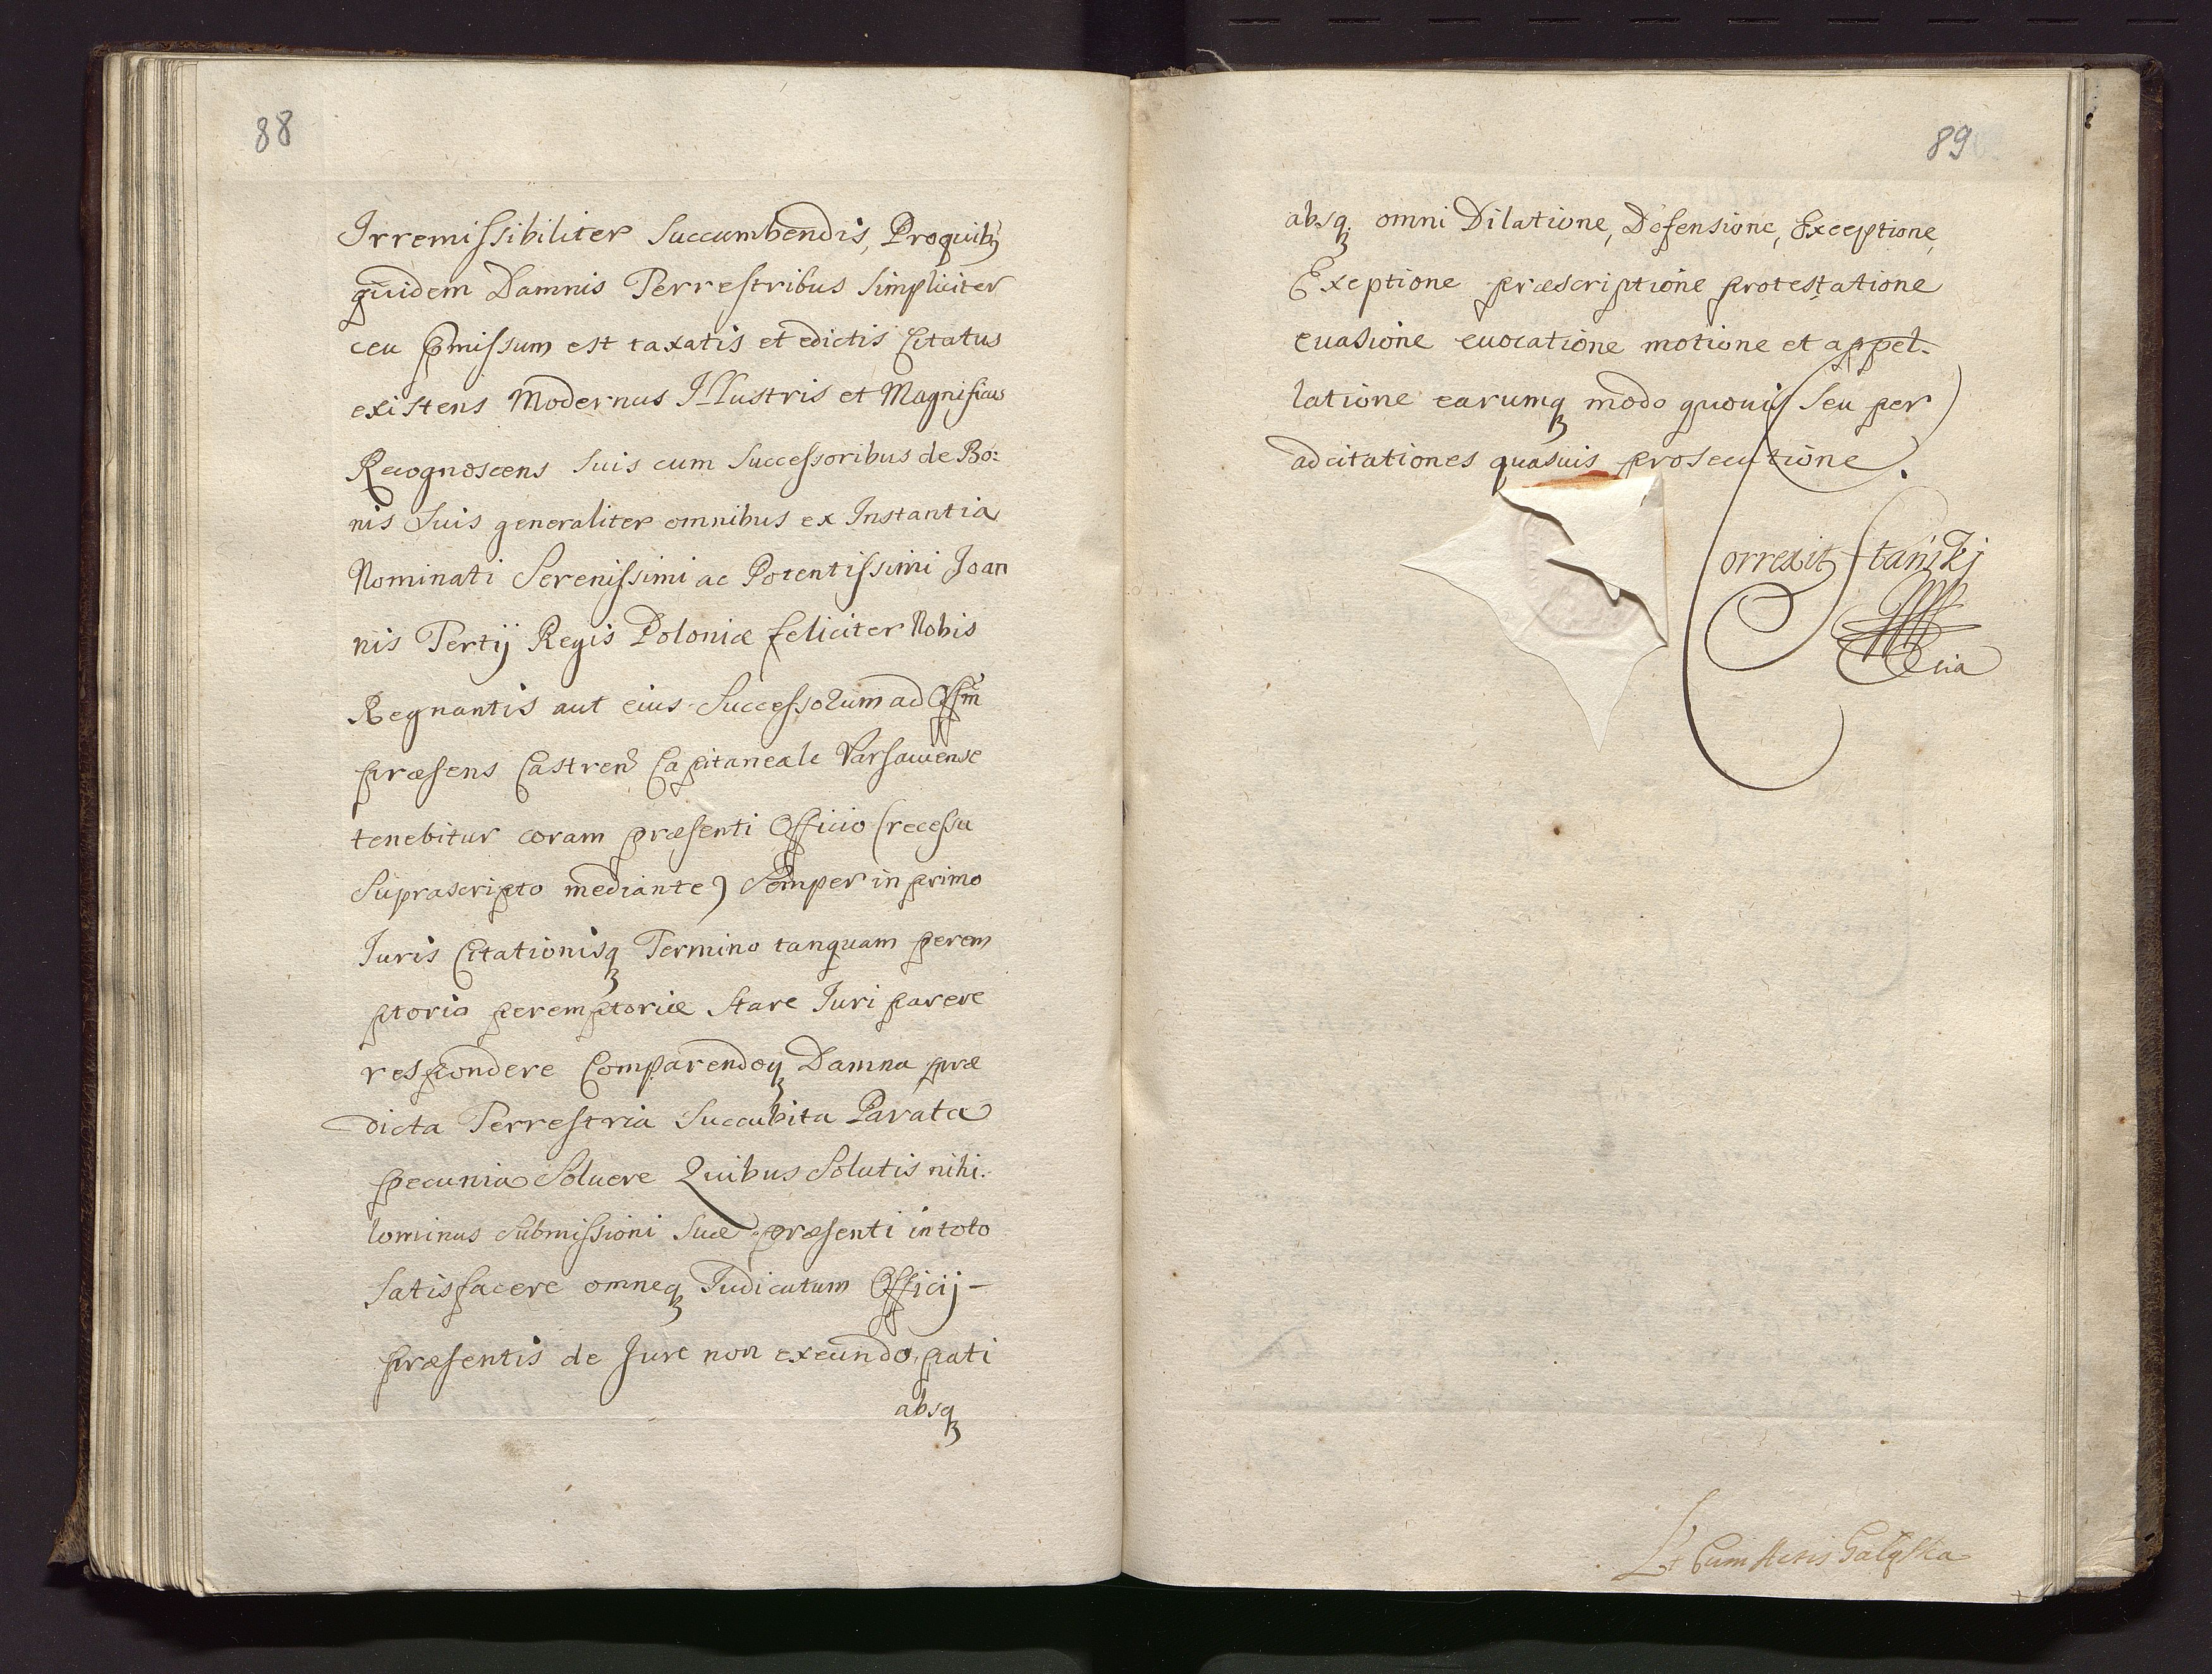 88
Irremissibiliter Succumbendis, Proquibq
quidem Damnis Terrestribus simpliciter
ceu pmissum est taxatis et edictis Citatus
existens Modernus Illustris et Magnificus
Recognoscens suis cum Successoribus de Bo:
nis Suis generaliter omnibus ex Instantia
Nominati Serenissimi ac Potentissimi Joan
nis Tertij Regis Poloniæ feliciter Nobis
Regnantis aut eius Successorum ad Offm
præsens Castren Capitaneale Varsauiense
tenebitur coram præsenti Officio (recessu
Suprascripto mediante) Semper in primo
Iuris Citationisq Termino tanquam perem
ptorio peremptoriæ Stare Iuri parere
respondere Comparendoq Damna præ
dicta Terrestria Succubita Parata
pecunia Soluere Quibus Solutis nihi.
lominus Submissioni Suæ præsenti in toto
Satisfacere omneq Iudicatum Officij –
præsentis de Jure non exeundo, pati
absq
89
absq omni Dilatione, Defensione, Exceptione,
Exeptione præscriptione protestatione
euasione euocatione motione et appel-
latione earumq modo quouis seu per
ad citationes quasuis prosecutione.
Correxit Stański